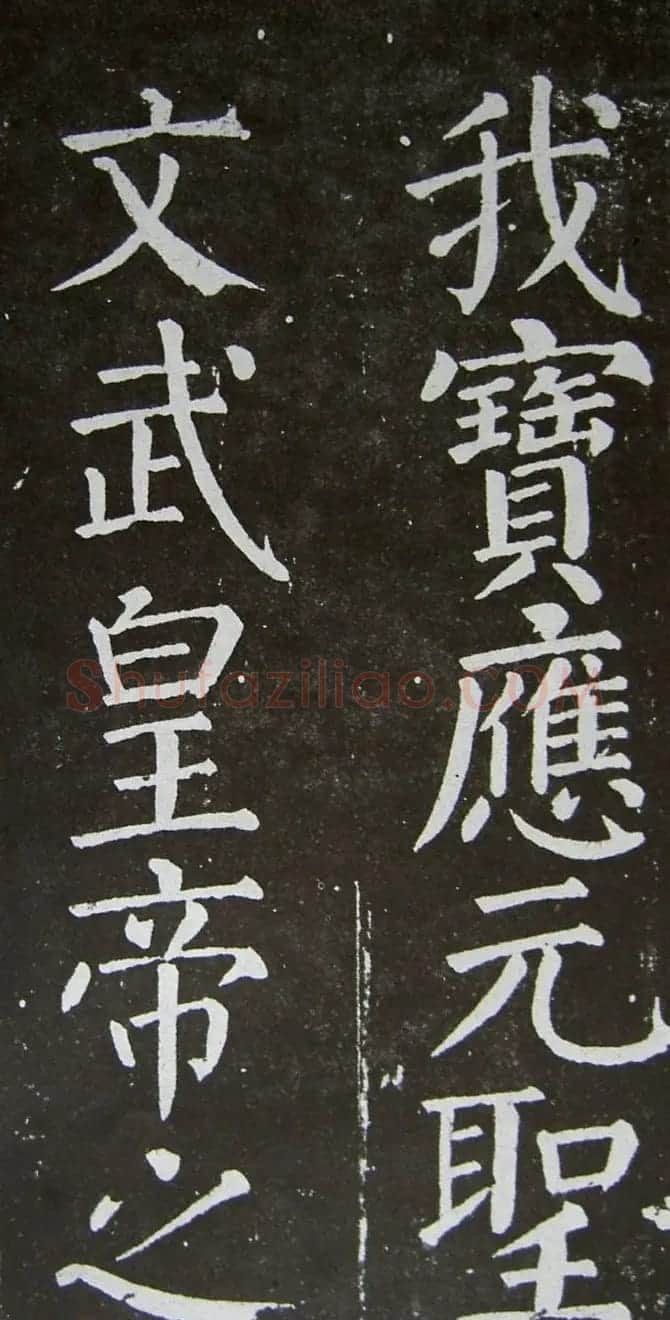 我寶應元聖
文武皇帝之
Shufaziliao.COM